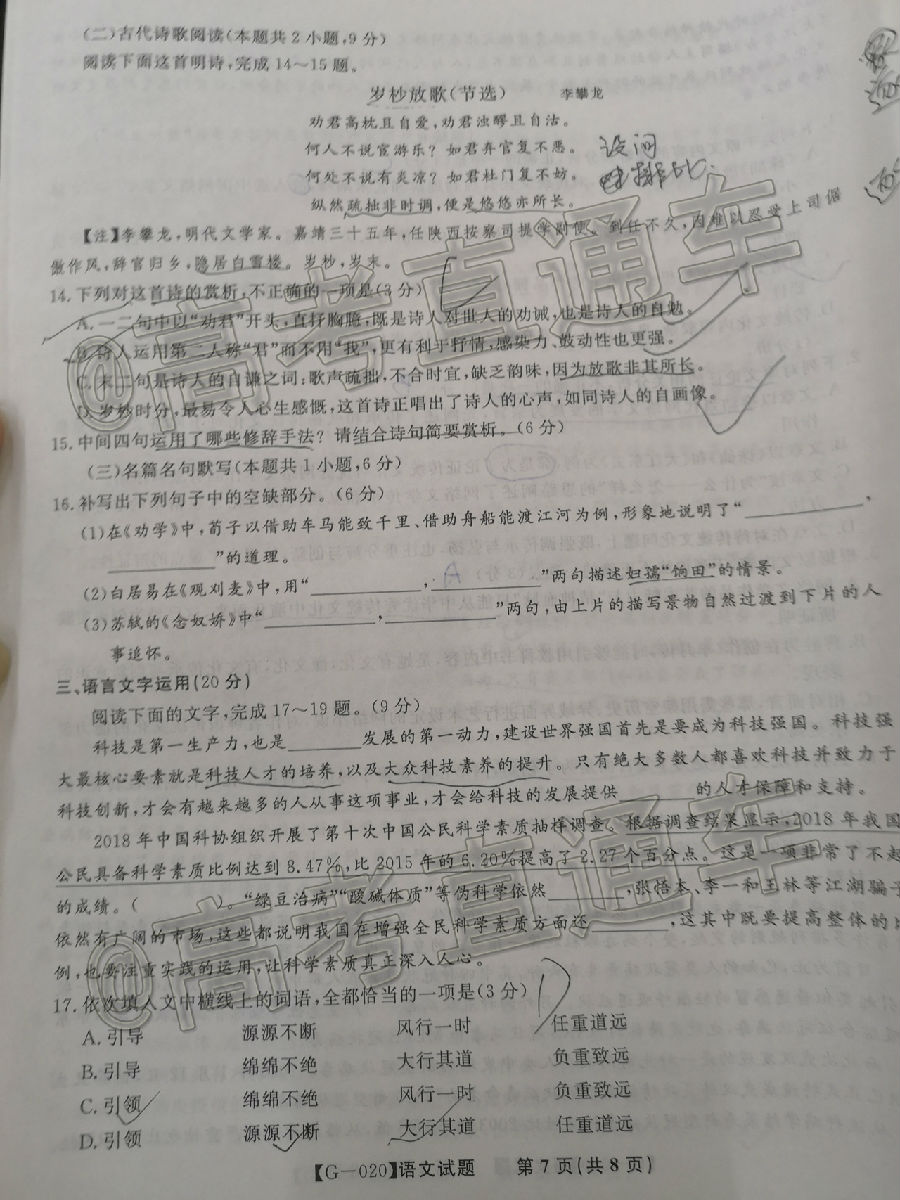 (二)古代诗歌阅读(本题共2小题,9分)
阅读下面这首明诗,完成14～15题。
岁杪放歌(节选) 李攀龙
劝君高枕且自爱,劝君浊醪且自沽。
何人不说宦游乐?如君弃官复不恶。 设问
何处不说有炎凉?如君杜门复不妨。 排比
纵然疏拙非时调,便是悠悠亦所长。
【注】李攀龙,明代文学家。嘉靖三十五年,任陕西按察司提学副使。到任不久,因难以忍受上司倨
傲作风,辞官归乡,隐居白雪楼。岁杪,岁末。
14.下列对这首诗的赏析,不正确的一项是(3分)
A.一二句中以“劝君”开头,直抒胸臆,既是诗人对世人的劝诫,也是诗人的自勉。
B.诗人运用第二人称“君”而不用“我”,更有利于抒情,感染力、鼓动性也更强。
C.末二句是诗人的自谦之词:歌声疏拙,不合时宜,缺乏韵味,因为放歌非其所长。
D.岁杪时分,最易令人心生感慨,这首诗正唱出了诗人的心声,如同诗人的自画像。
15.中间四句运用了哪些修辞手法?请结合诗句简要赏析。(6分)
(三)名篇名句默写(本题共1小题,6分)
16.补写出下列句子中的空缺部分。(6分)
(1)在《劝学》中,荀子以借助车马能致千里、借助舟船能渡江河为例,形象地说明了“__________,
__________”的道理。
(2)白居易在《观刈麦》中,用“__________,__________”两句描述妇孺“饷田”的情景。
(3)苏轼的《念奴娇》中“__________,__________”两句,由上片的描写景物自然过渡到下片的人
事追怀。
三、语言文字运用(20分)
阅读下面的文字,完成17～19题。(9分)
科技是第一生产力,也是________发展的第一动力,建设世界强国首先是要成为科技强国。科技强
大最核心要素就是科技人才的培养,以及大众科技素养的提升。只有绝大多数人都喜欢科技并致力于
科技创新,才会有越来越多的人从事这项事业,才会给科技的发展提供________的人才保障和支持。
2018年中国科协组织开展了第十次中国公民科学素质抽样调查。根据调查结果显示,2018年我国
公民具备科学素质比例达到8.47%,比2015年的6.20%提高了2.27个百分点。这是一项非常了不起
的成绩。( )。“绿豆治病”“酸碱体质”等伪科学依然________,张悟本、李一和王林等江湖骗子
依然有广阔的市场,这些都说明我国在增强全民科学素质方面还________,这其中既要提高整体的比
例,也要注重实践的运用,让科学素质真正深入人心。
17.依次填入文中横线上的词语,全都恰当的一项是(3分) D
A.引导 源源不断 风行一时 任重道远
B.引导 绵绵不绝 大行其道 负重致远
C.引领 绵绵不绝 风行一时 负重致远
D.引领 源源不断 大行其道 任重道远
【G－020】语文试题 第7页(共8页)
@高考直通车
@高考直通车